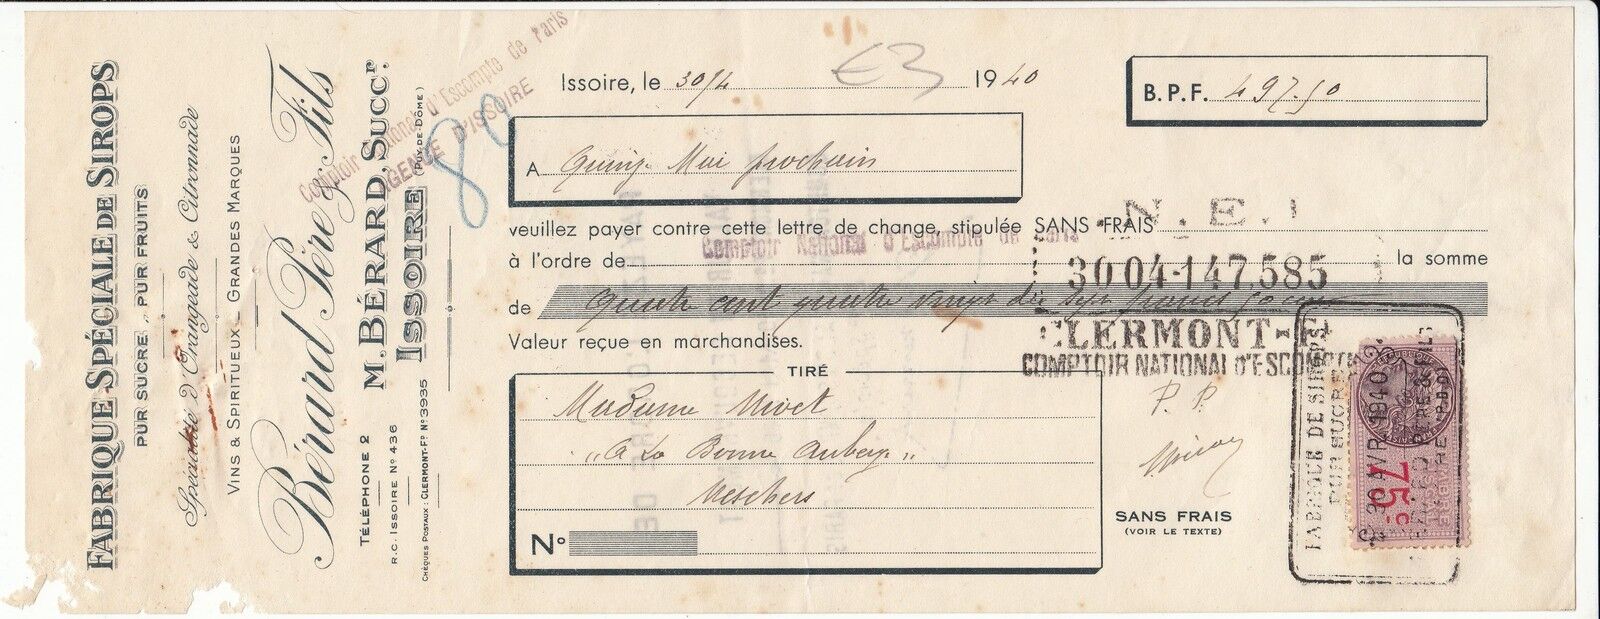 FABRIQUE SPÉCIALE DE SIROPS
PUR SUCRE _ PUR FRUITS
Spécialité d'Orangeade & Citronnade
VINS & SPIRITUEUX _ GRANDES MARQUES
Bérard Père & Fils
M. BÉRARD, SUCCr.
ISSOIRE (PUY-DE-DÔME)
TÉLÉPHONE 2
R.C. ISSOIRE No 436
CHÈQUES POSTAUX : CLERMONT-Fd No 3935
Comptoir National d'Escompte de Paris
AGENCE D'ISSOIRE
80
Issoire, le 30/4 1940
B.P.F. 497.50
A Quinze Mai prochain
veuillez payer contre cette lettre de change, stipulée SANS-FRAIS
N.E.
à l'ordre de Comptoir National d'Escompte de Paris la somme
3004-147.585
de Quatre cent quatre vingt dix sept francs 50
CLERMONT-F
COMPTOIR NATIONAL D'ESCOMPTE
Valeur reçue en marchandises.
TIRÉ
Madame Nivet
"A La Bonne Auberge"
Meschers
No
P.P.
SANS FRAIS
(VOIR LE TEXTE)
FABRIQUE DE SIROPS
PUR SUCRE
30 AVR 1940
75c